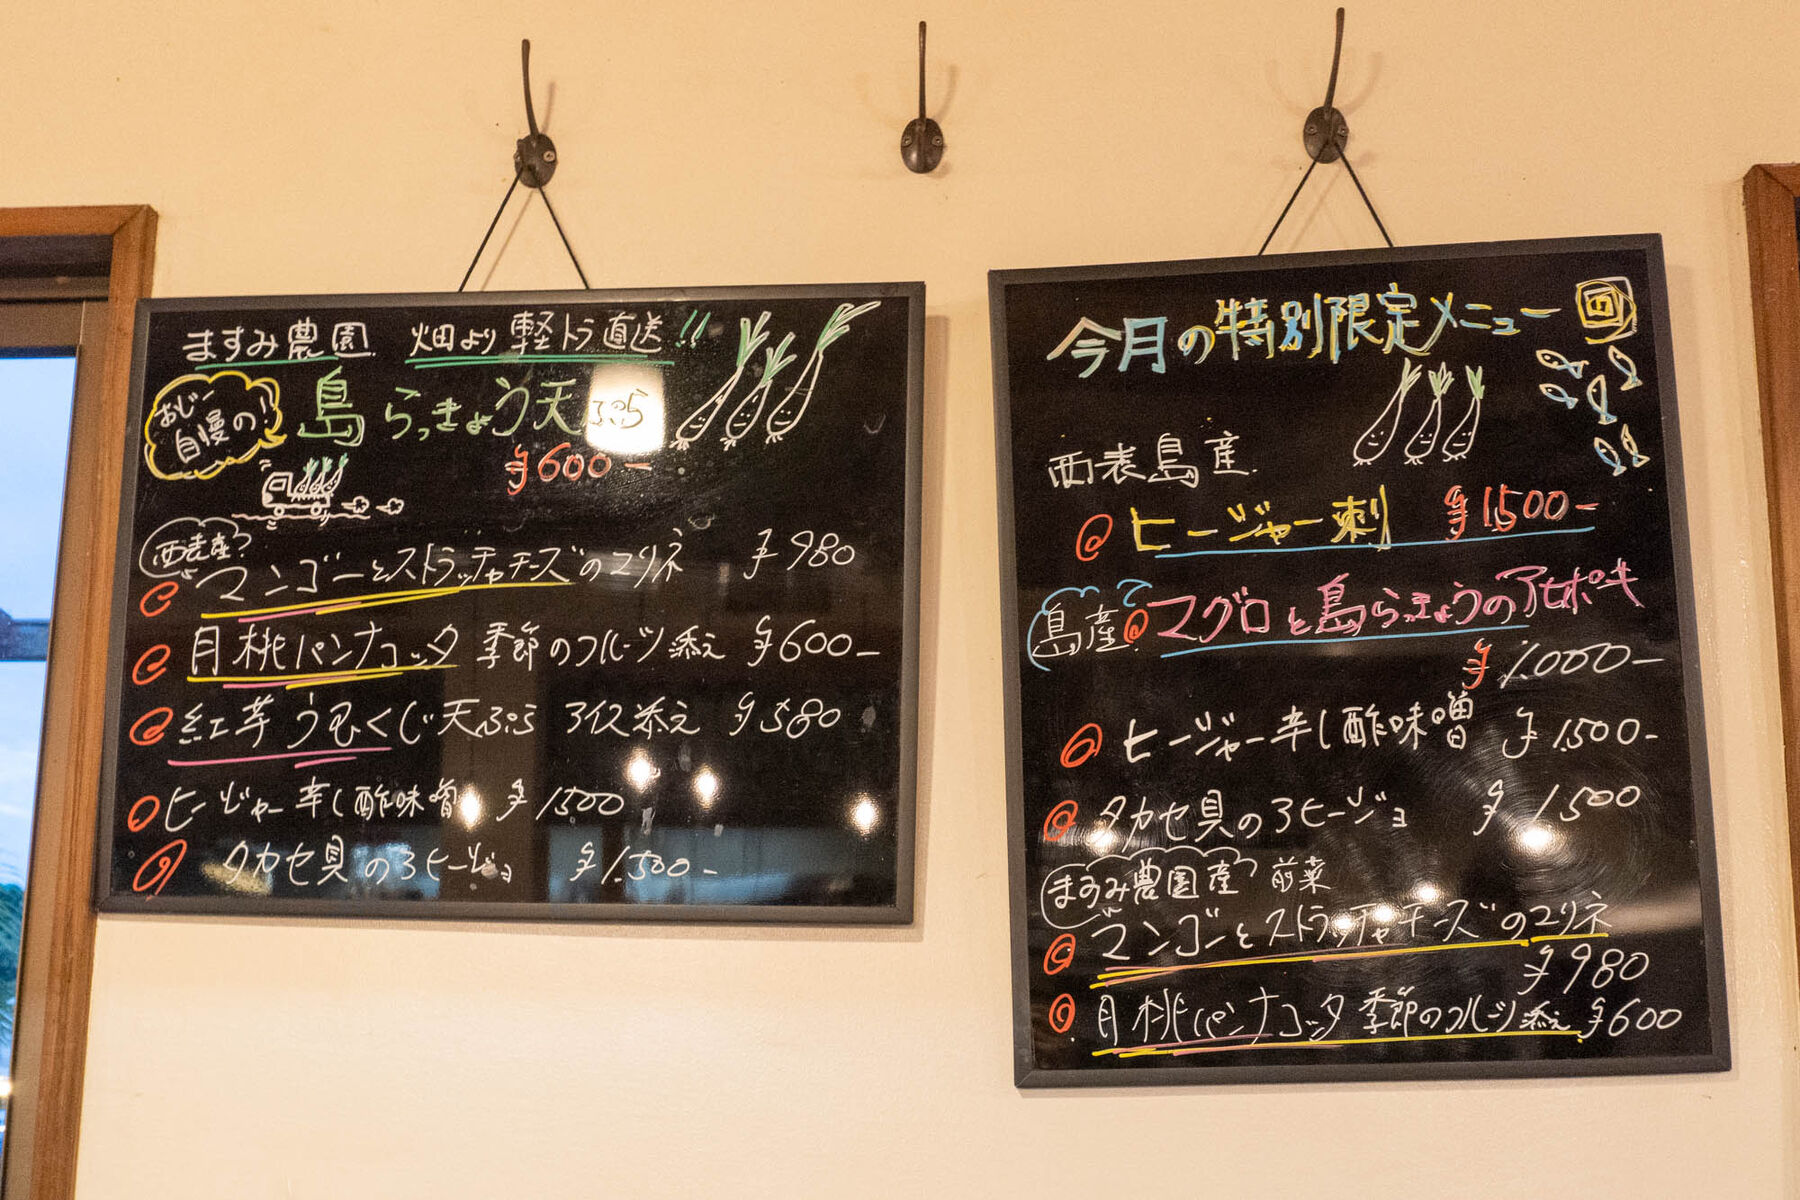 ますみ農園 畑より軽トラ直送!!
おじー
自慢の!
島らっきょう天ぷら
¥600-
西表産
マンゴーとストラッチャチーズのマリネ ¥980
月桃パンナコッタ 季節のフルーツ添え ¥600-
紅芋うむくじ天ぷら アイス添え ¥580
ヒージャー辛し酢味噌 ¥1500
タカセ貝のアヒージョ ¥1.500-
今月の特別限定メニュー
西表島産
ヒージャー刺 ¥1,500-
島産
マグロと島らっきょうのアヒポキ
¥1.000-
ヒージャー辛し酢味噌 ¥1.500-
タカセ貝のアヒージョ ¥1.500
ますみ農園産 前菜
マンゴーとストラッチャチーズのマリネ
¥980
月桃パンナコッタ 季節のフルーツ添え ¥600